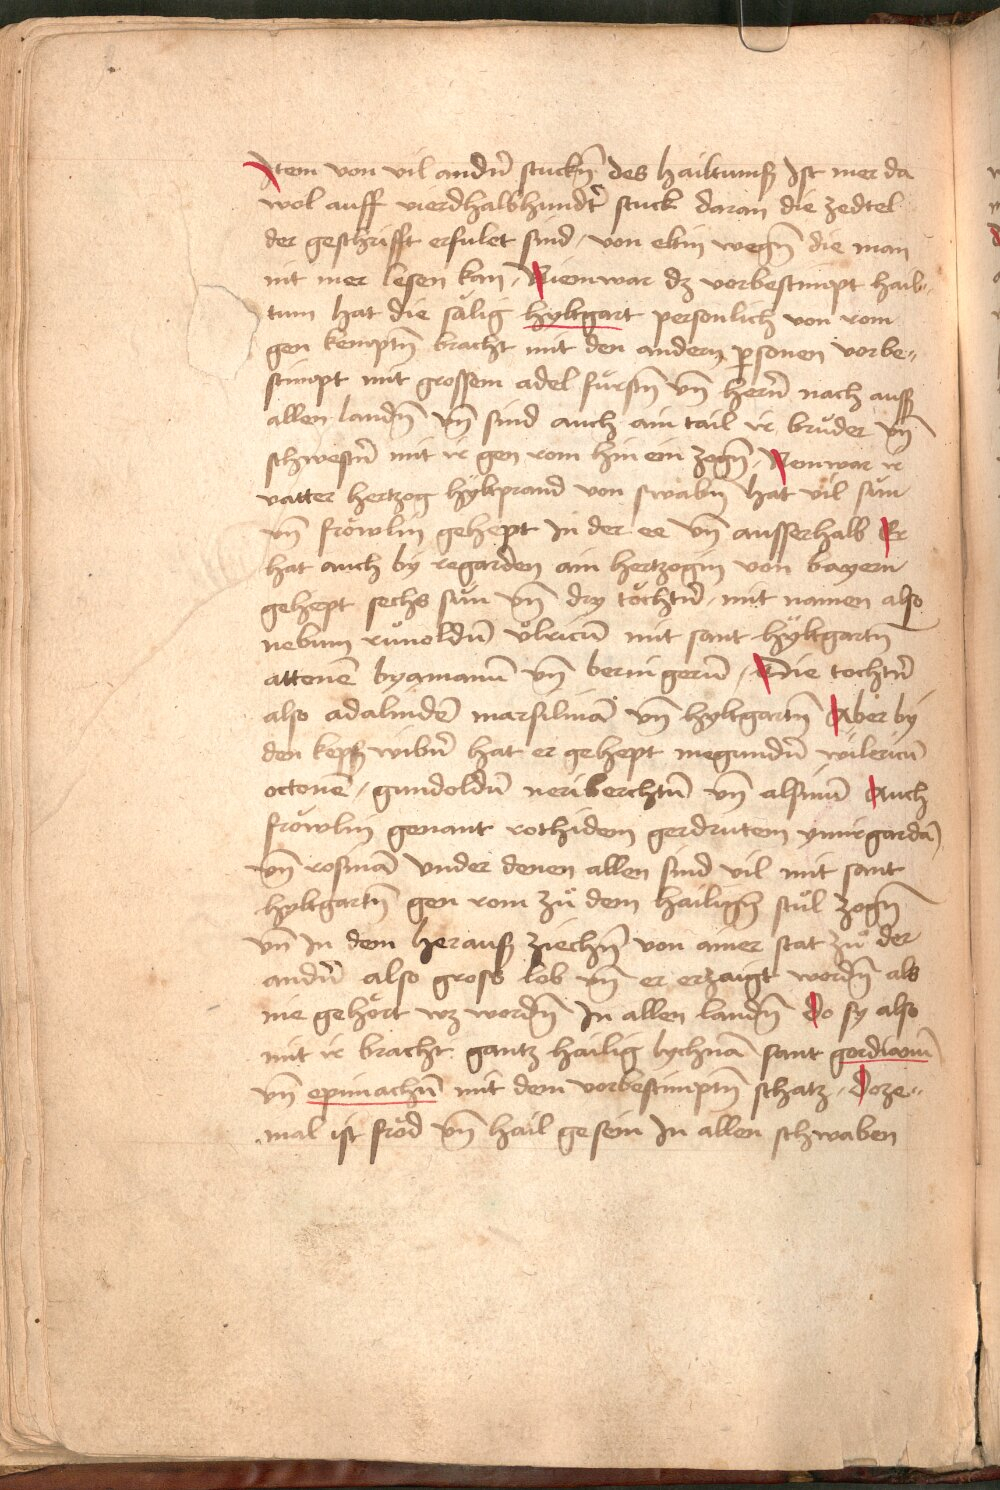 Item von vil andn̄ stuckn̄ des hailtumß Ist mer da
wol auff vierdhalbhundt̄ stuck daran die zedtel
der geschrifft erfulet sind / von eltin wegn̄ die man
nit mer lesen kan / Nienwar dz vorbestimpt hail„
tum hat die sälig hyltgart personlich von rom
gen kemptn̄ bracht mit den andern psonen vorbe„
stimpt mit grossem adel fürstn̄ vn̄ hern̄ nach auß
allen landn̄ vn̄ sind auch ain tail ir brůder vn̄
schwestn̄ mit ir gen rom hin ein zogn̄ / Nenwar ir
vatter hertzog hyltprand von swabn̄ hat vil sün
vn̄ fröwlin gehept In der ee vn̄ ausserhalb Er
hat auch by regarden ain hertzogin von bayern
gehept sechs sün vn̄ dry töchtn̄ / mit namen also
nebum růnoldū ůlricū mit sant hyltgartn̄
attonē byamanū vn̄ beringerū / Die tochtn̄
also adalindē marsilinā vn̄ hyltgartn̄ Aber by
den kepß wibn̄ hat er gehept megundū wilericū
octonē / gundoldū neriberchtū vn̄ alsinū Auch
fröwlin genant rothidem gerdrutem ymirgardā
vn̄ rosinā vnder denen allen sind vil mit sant
hyltgartn̄ gen rom zů dem hailign̄ stůl zogn̄
vn̄ In dem herauß ziechn̄ von ainer stat zů der
andn̄ also gross lob vn̄ er erzaigt wordn̄ als
nie gehört wz wordn̄ In allen landn̄ Do sy also
mit ir bracht gantz hailig lychnā sant gordianū
vn̄ epimachū mit dem vorbestimptn̄ schatz / Doze„
mal ist fröd vn̄ hail gesein In allen schwaben